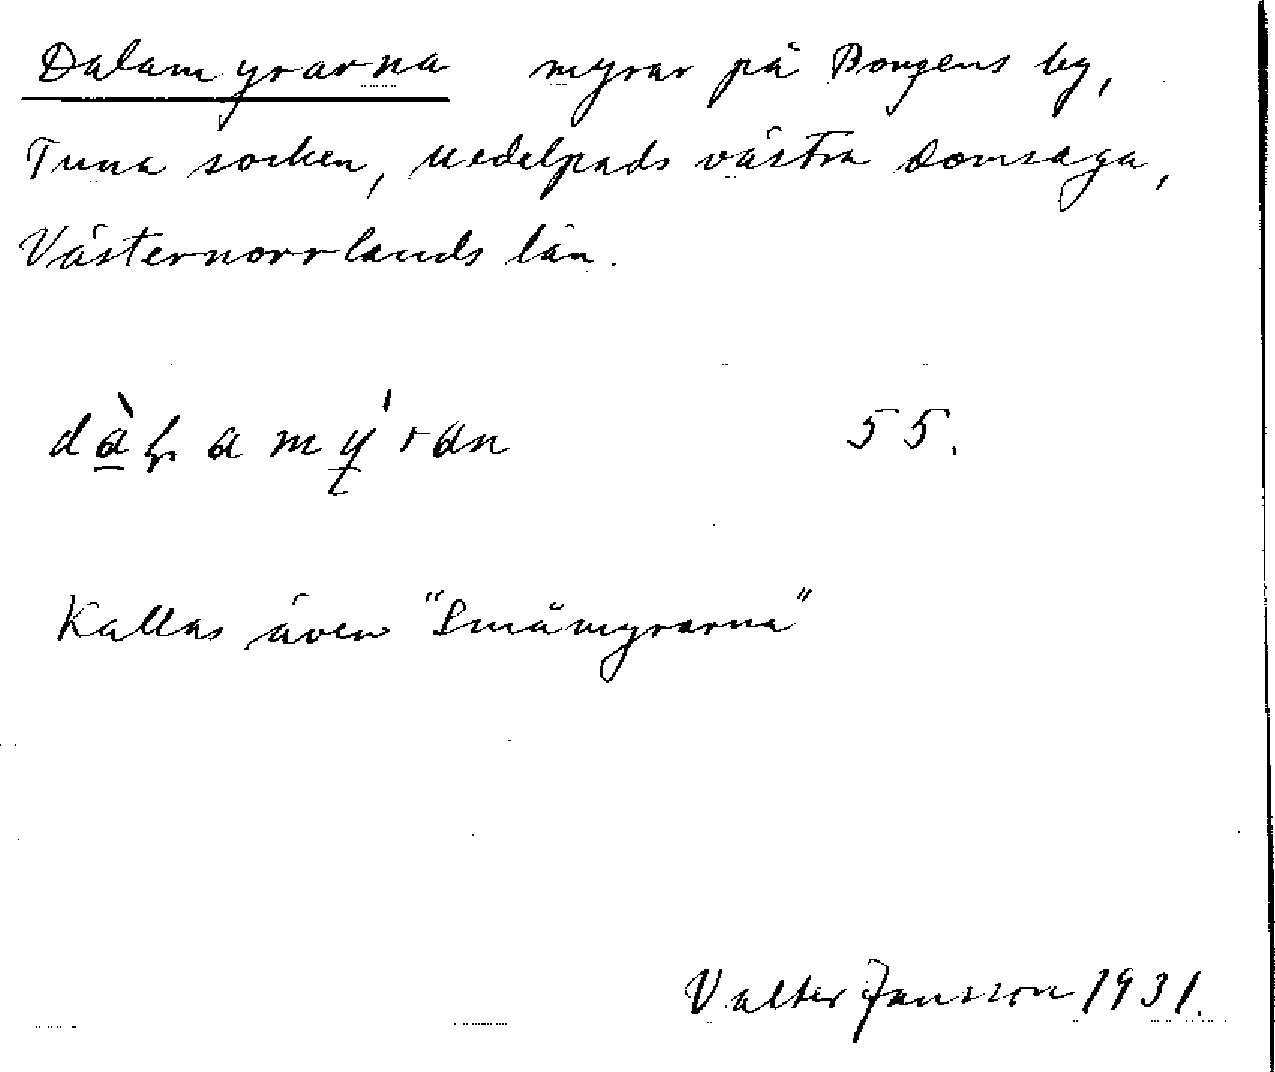 Dalamyrarna myrar på Bougens by,
Tuna socken, Medelpads västra domsaga,
Västernorrlands län.
55.
Kallas även "Småmyrarna"
Valter Jansson 1931.